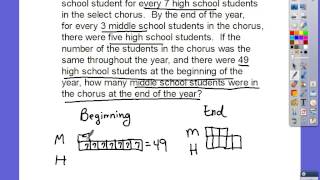 school student for every 7 high school students
in the select chorus. By the end of the year,
for every 3 middle school students in the chorus,
there were five high school students. If the
number of the students in the chorus was the
same throughout the year, and there were 49
high school students at the beginning of the
year, how many middle school students were in
the chorus at the end of the year?
Beginning End
M M
H 7 7 7 7 7 7 7 =49 H